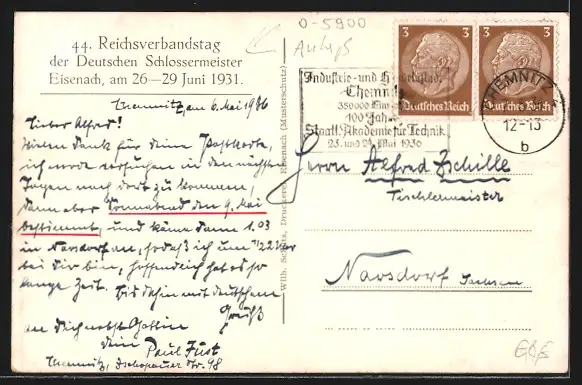 O-5900
44. Reichsverbandstag
der Deutschen Schlossermeister
Eisenach, am 26—29 Juni 1931.
Chemnitz, am 6. Mai 1936
Lieber Alfred!
Vielen Dank für deine Postkarte,
ich werde versuchen in den nächsten
Tagen nach dort zu kommen,
dann aber Sonnabend den 9. Mai
bestimmt, und käme dann 1.03
in Navsdorf an, sodaß ich um 1/2 2 Uhr
bei Dir bin, hoffentlich hat es so
lange Zeit. Bis dahin mit deutschem
Gruß
an Dich nebst Gattin
dein Paul Füst
Chemnitz, Zschopauer Str. 98
Wilh. Schütz, Druckerei, Eisenach (Musterschutz)
Industrie- und
Chemnitz
350000
100 Jahre
Staatl. Akademie für Technik
23. und 24. Mai 1936
3 3 3 3
Deutsches Reich Deutsches Reich
CHEMNITZ
12-13
b
Herrn Alfred Zschille
Tischlermeister
Navsdorf Sachsen